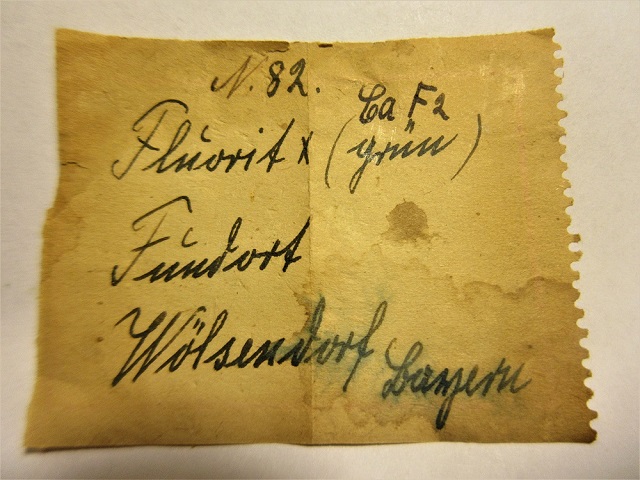 N. 82.
Ca F2
Fluorit x (grün)
Fundort
Wölsendorf Bayern